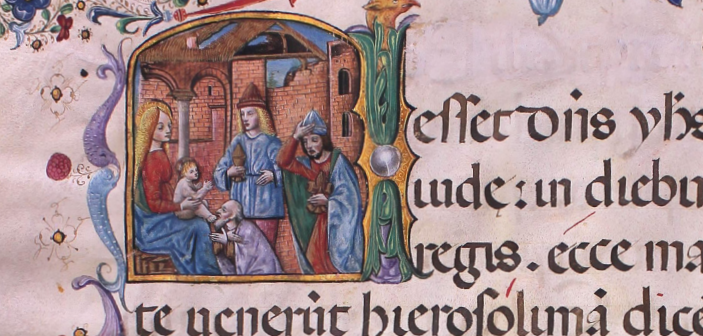 eſſet dn̄s yħs
iudę: in diebu
regis. ecce ma
te uenerūt hieroſolimā dicē